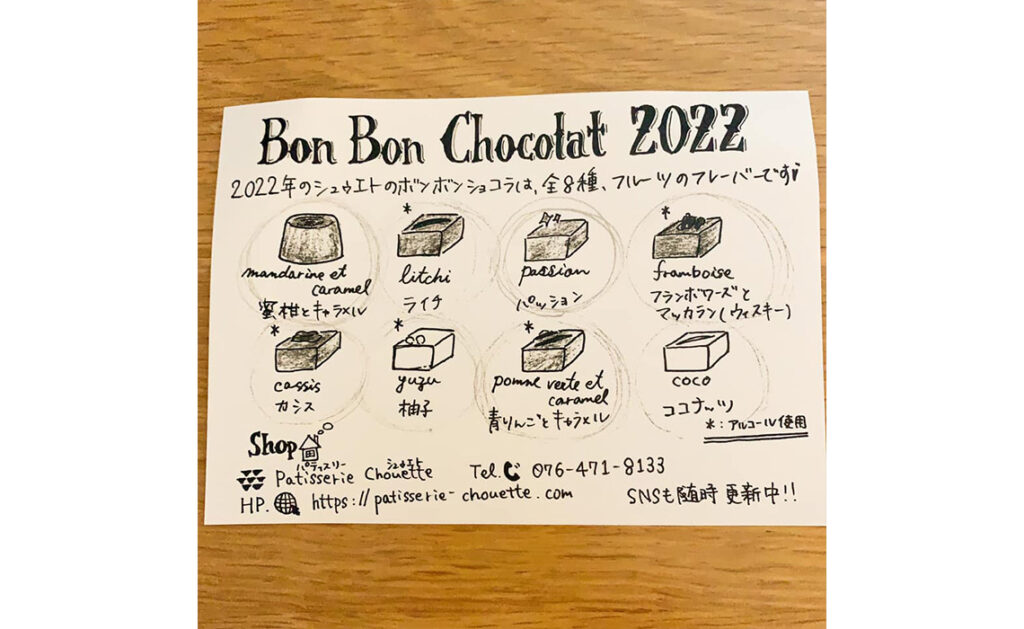 Bon Bon Chocolat 2022
2022年のシュウエトのボンボンショコラは、全8種、フルーツのフレーバーです
mandarine et
caramel
蜜柑とキャラメル
*
litchi
ライチ
passion
パッション
*
framboise
フランボワーズと
マッカラン(ウィスキー)
*
cassis
カシス
*
yuzu
柚子
*
pomme verte et
caramel
青りんごとキャラメル
coco
ココナッツ
*:アルコール使用
Shop
パティスリー シュウエト
Patisserie Chouette
Tel. 076-471-8133
HP. https://patisserie-chouette.com
SNSも随時更新中!!